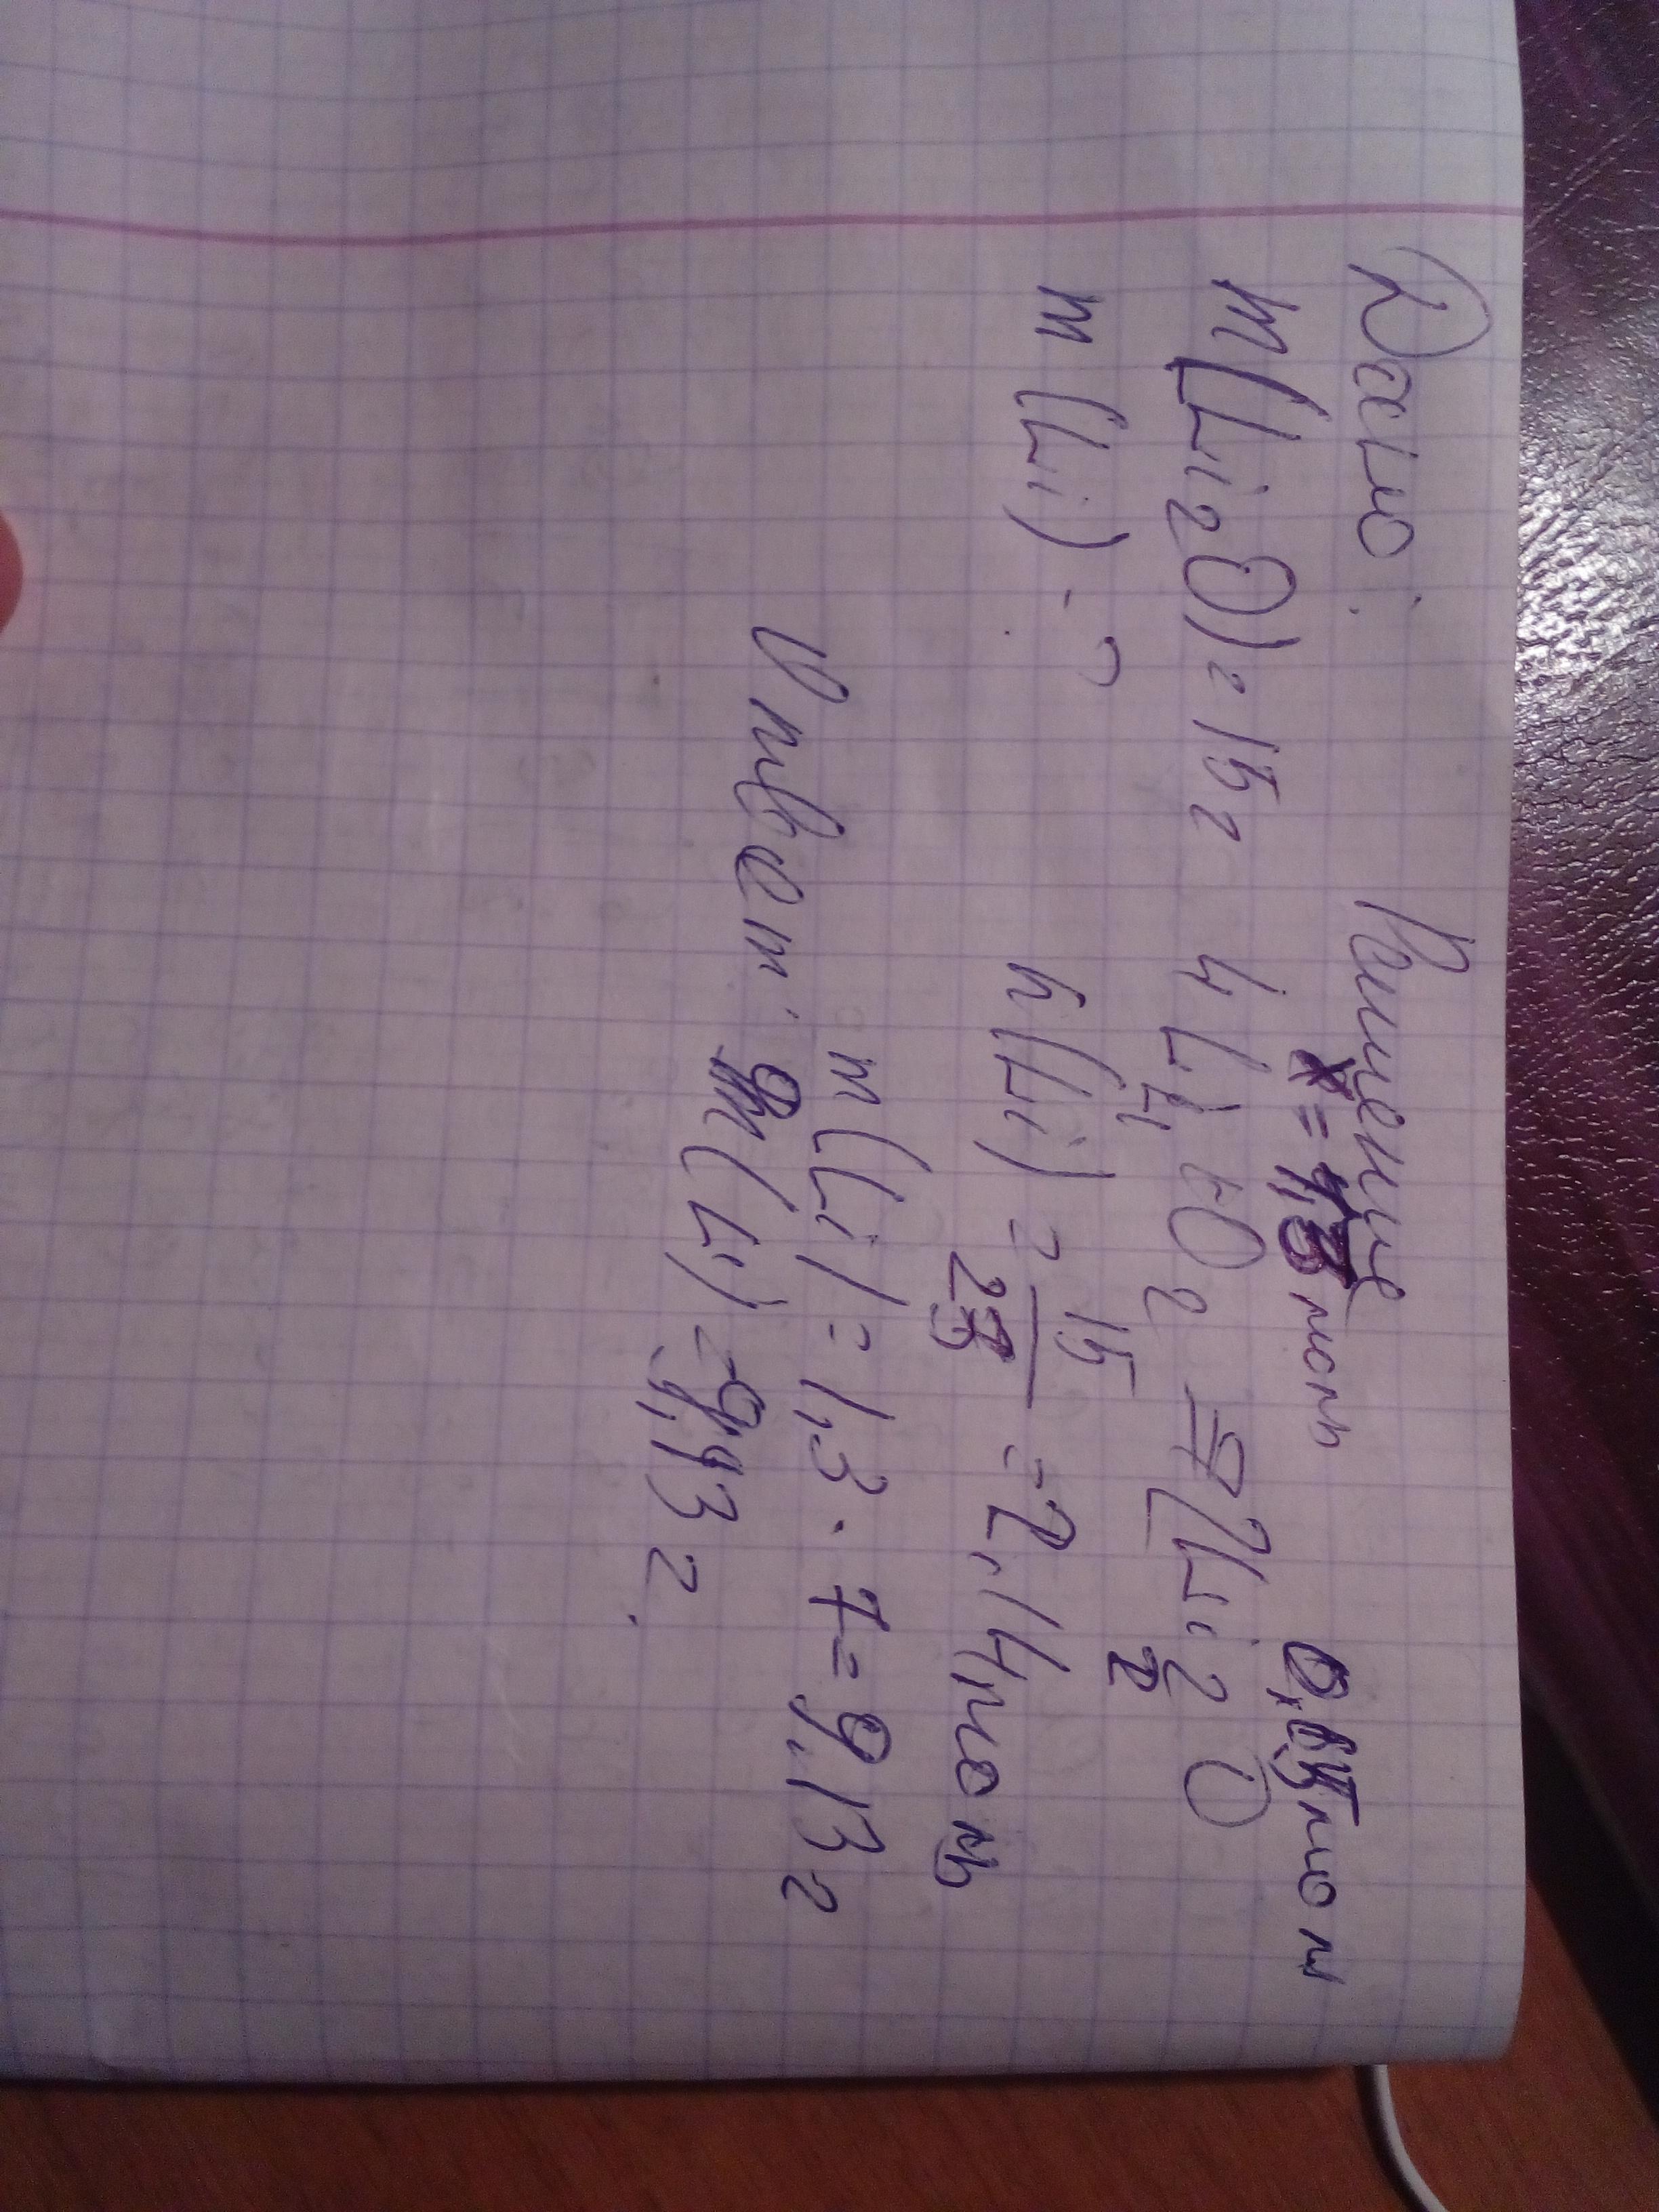 Дано: Решение
x = 1,3 моль 0,65 мол
m(Li2O) = 15 г 4Li + O2 = 2Li2O
4 2
m(Li) - ? n(Li) = 15 / 23 = 2,14 моль
m(Li) = 1,3 · 7 = 9,13 г
Ответ: m(Li) = 9,13 г.